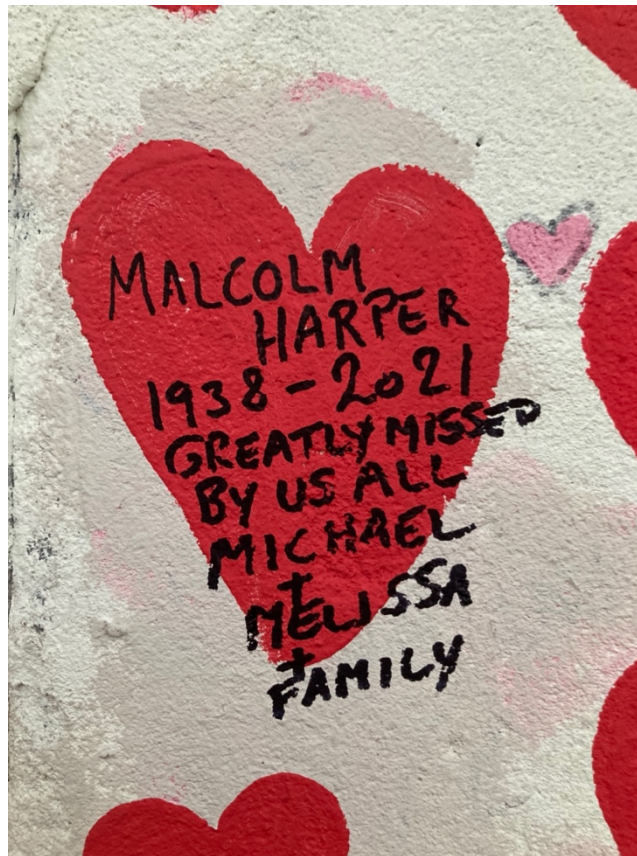 MALCOLM
HARPER
1938-2021
GREATLY MISSED
BY US ALL
MICHAEL
+
MELISSA
+
FAMILY